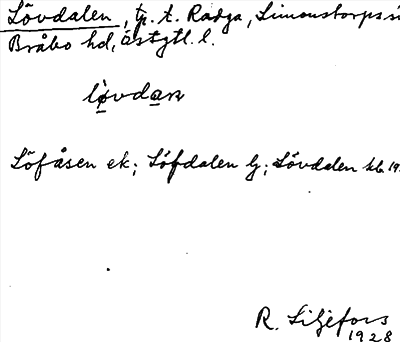 Lövdalen, tp. t. Radga, Simonstorps
Bråbo hd, Östgtl. l.
lövdan
Löfåsen ek; Löfdalen lj; Lövdalen kb 19
R. Liljefors
1928